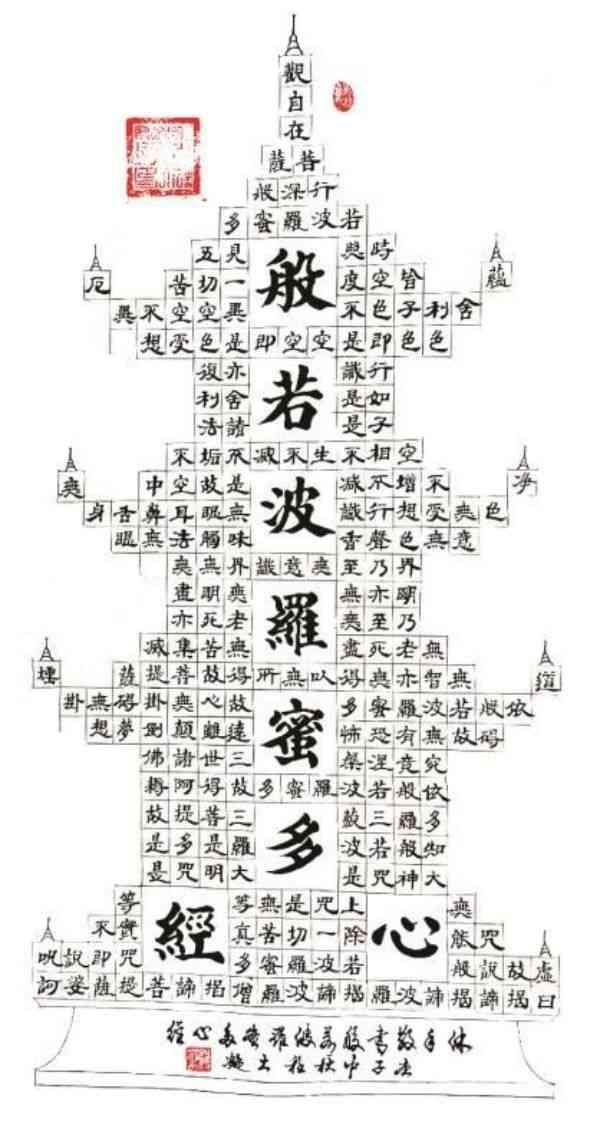 觀
自
在
菩薩
行深般
若波羅蜜多
時照見五
蘊皆空度一切苦厄
舍利子色不異空空不異
色色即是空空即是色受想
行識亦復
如是舍利
子是諸法
空相不生不滅不垢不
淨不增不減是故空中無
色無受想行識無眼耳鼻舌身
意無色聲香味觸法無眼
界乃至無意識界無
明亦無無明盡
乃至無老死亦
無老死盡無苦集滅
道無智亦無得以無所得故菩提薩埵
依般若波羅蜜多故心無掛碍無掛
碍故無有恐怖遠離顛倒夢想
究竟涅槃三世諸佛
依般若波羅蜜多故得阿耨
多羅三藐三菩提故
知般若波羅蜜多是
大神咒是大明咒是
無上咒是無等等
咒能除一切苦真實不
虛故說般若波羅蜜多咒即說咒
曰揭諦揭諦波羅揭諦波羅僧揭諦菩提薩婆訶
般
若
波
羅
蜜
多
心經
般若波羅蜜多心經